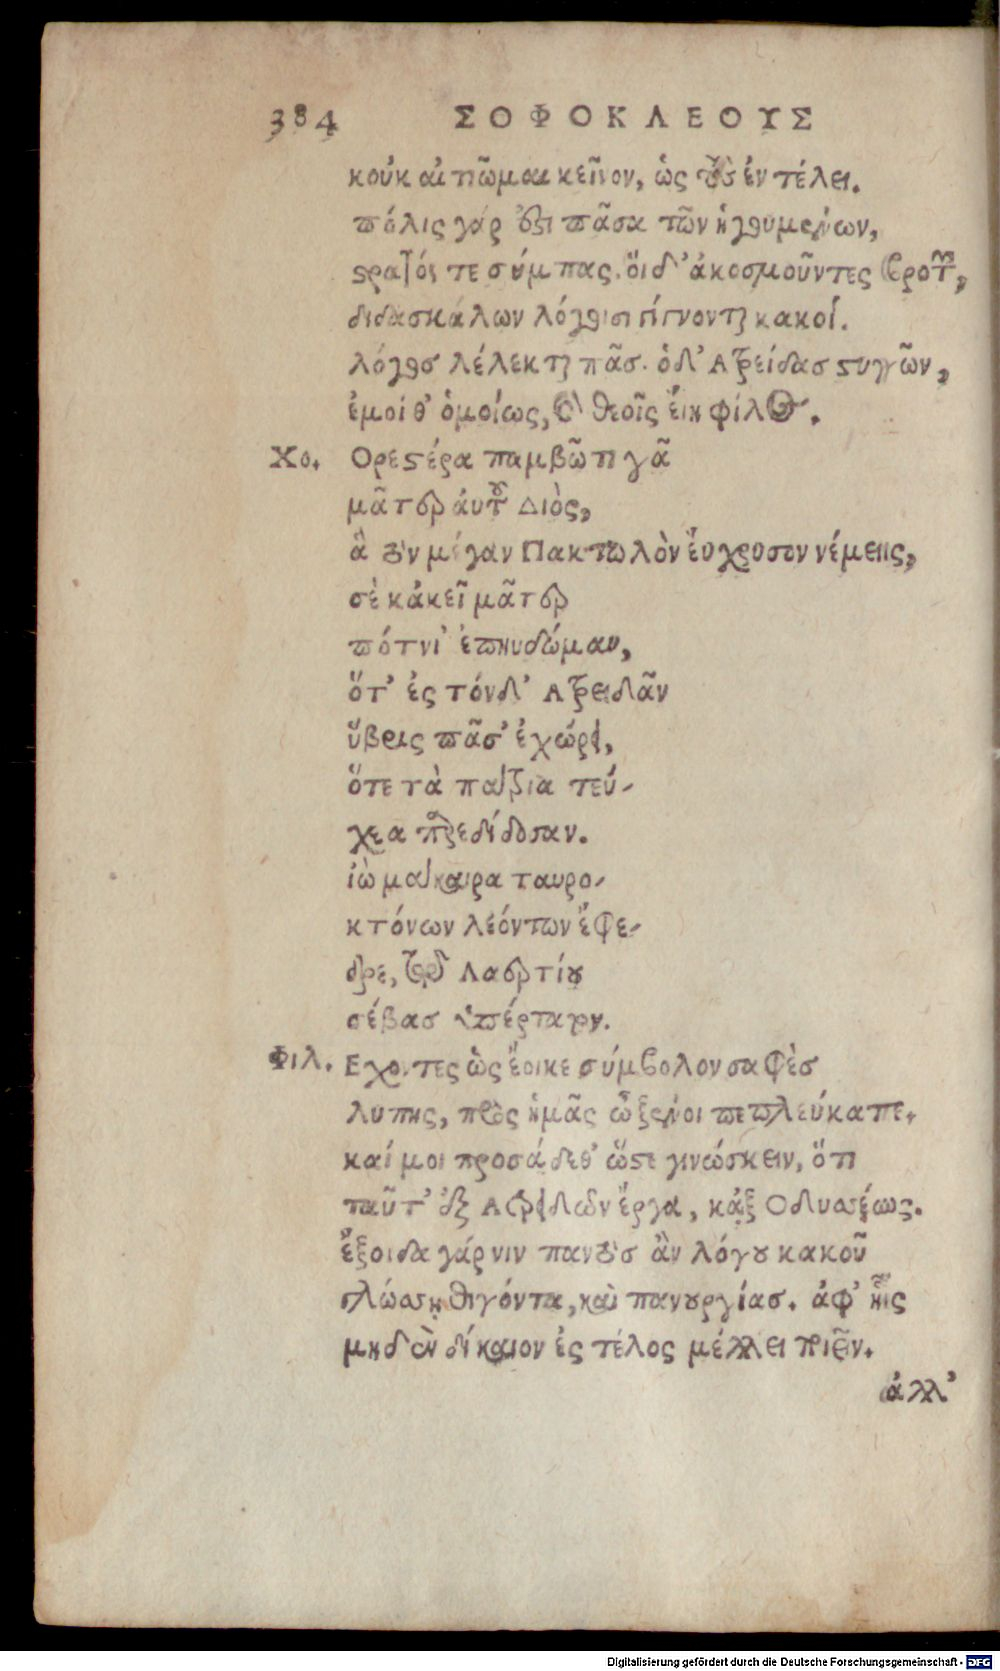 384 ΣΟΦΟΚΛΕΟΥΣ
κοὐκ αἰτιῶμαι κεῖνον, ὡς τοὺς ἐν τέλει.
πόλις γάρ ἐστι πᾶσα τῶν ἡγουμένων,
στρατός τε σύμπας. οἱ δ' ἀκοσμοῦντες βροτῶν,
διδασκάλων λόγοισι γίγνονται κακοί.
λόγος λέλεκται πᾶς. ὁ δ' Ατρείδας στυγῶν,
ἐμοί θ' ὁμοίως, καὶ θεοῖς εἴη φίλος.
Χο. Ορεστέρα παμβῶτι γᾶ
μᾶτερ αὐτοῦ Διὸς,
ἃ τὸν μέγαν Πακτωλὸν εὔχρυσον νέμεις,
σὲ κἀκεῖ μᾶτερ
πότνι' ἐπηυδώμαν,
ὅτ' ἐς τόνδ' Ατρειδᾶν
ὕβρις πᾶσ' ἐχώρει,
ὅτε τὰ πάτρια τεύ-
χεα παρεδίδοσαν.
ἰὼ μάκαιρα ταυρο-
κτόνων λεόντων ἔφε-
δρε, τῷ Λαερτίου
σέβας ὑπέρτατον.
Φιλ. Εχοντες ὡς ἔοικε σύμβολον σαφὲς
λύπης, πρὸς ἡμᾶς ὦ ξένοι πεπλεύκατε.
καί μοι προσάδεθ' ὥστε γινώσκειν, ὅτι
ταῦτ' ἐξ Ατρειδῶν ἔργα, κἀξ Οδυσσέως.
ἔξοιδα γάρ νιν παντὸς ἂν λόγου κακοῦ
γλώσσῃ θιγόντα, καὶ πανουργίας. ἀφ' ἧς
μηδὲν δίκαιον ἐς τέλος μέλλει ποιεῖν.
ἀλλ'
Digitalisierung gefördert durch die Deutsche Forschungsgemeinschaft - DFG